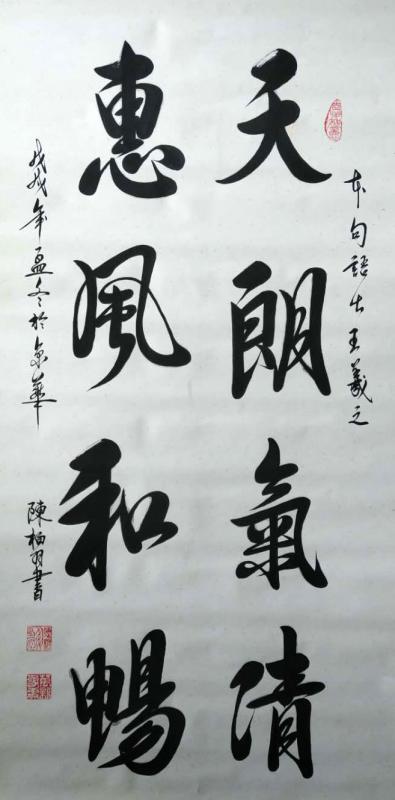 本句語出王羲之
天朗氣清
惠風和暢
戊戌年孟冬於京華
陳羽書